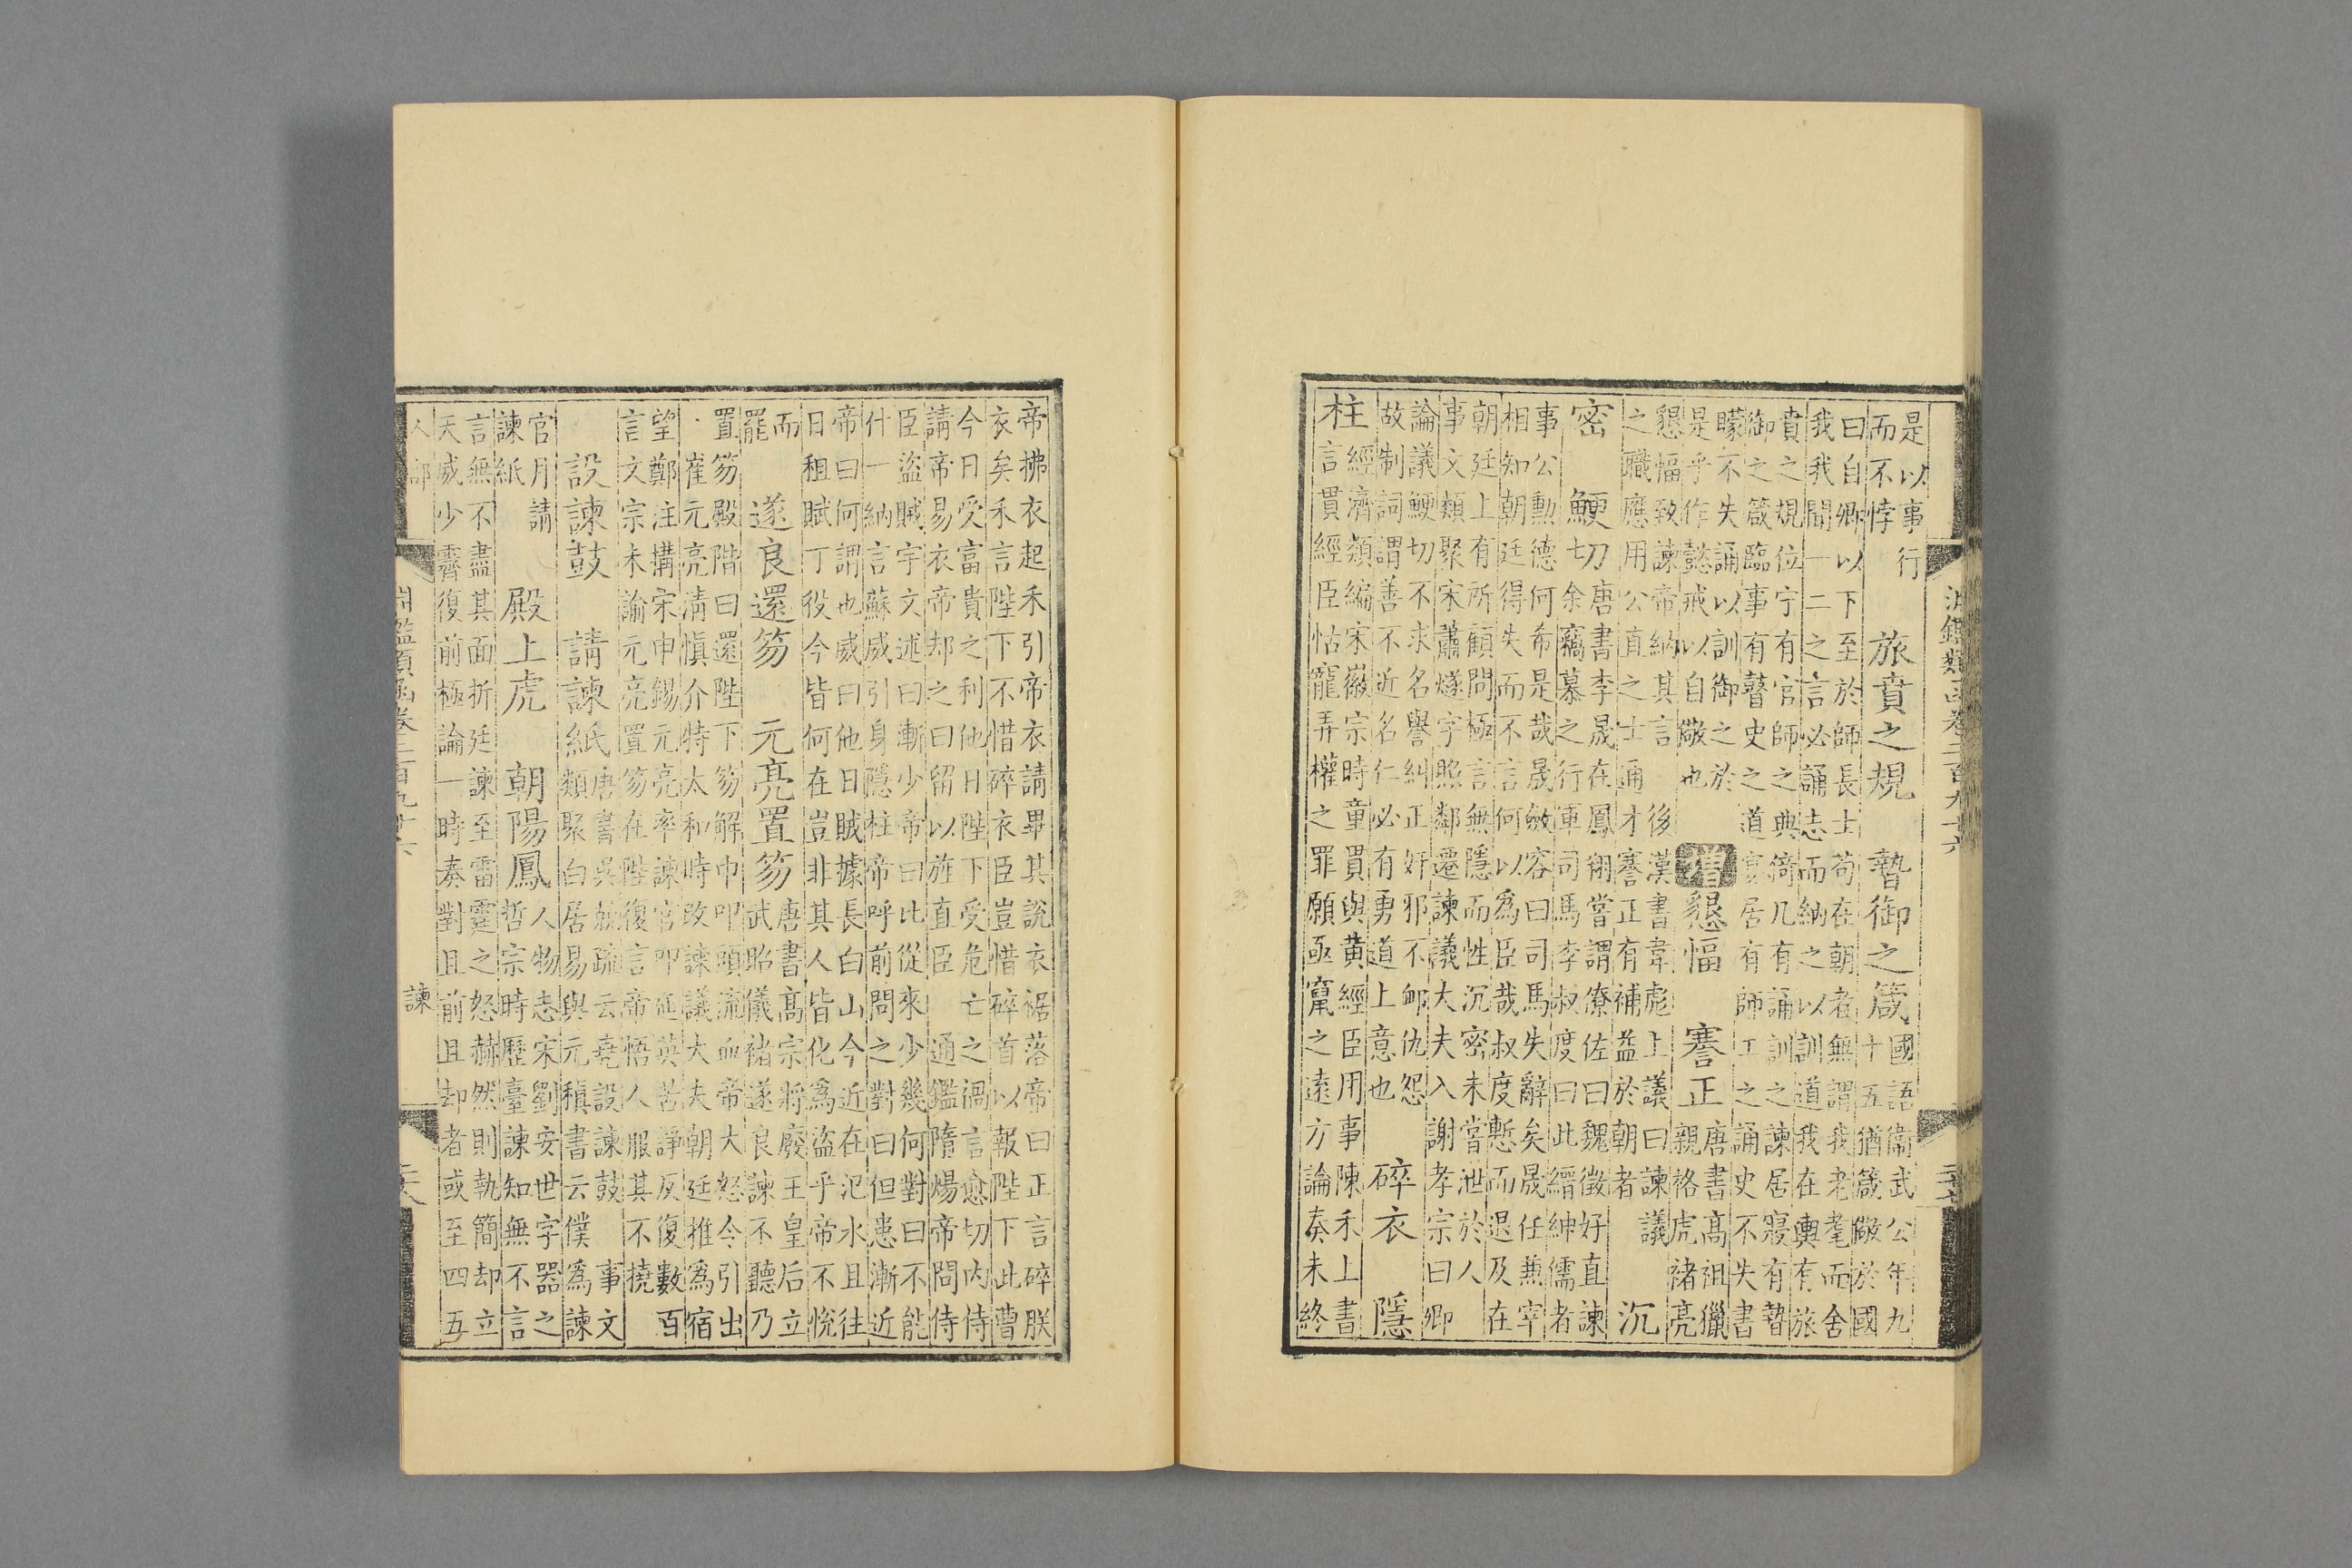 淵鑑類函卷二百九十六
是以事行
而不悖
旅賁之規 暬御之箴
國語衛武公年九
十五猶箴儆於國
曰自卿以下至於師長士苟在朝者無謂我老耄而舍
我我聞一二之言必誦志而納之以訓道我在輿有旅
賁之規位宁有官師之典倚几有誦訓之諫居寢有暬
御之箴臨事有瞽史之道宴居有師工之誦史不失書
矇不失誦以訓御之於
是乎作懿戒以自儆也
增 懇愊 謇正
唐書高祖獵
親格虎褚亮
懇愊致諫帝納其言 後漢書韋彪上議曰諫議
之職應用公直之士通才謇正有補益於朝者
沉
密 鯁切
唐書李晟在鳳翔嘗謂僚佐曰魏徵好直諫
余竊慕之行軍司馬李叔度曰此縉紳儒者
事公勳德何希是哉晟斂容曰司馬失辭矣晟任兼宰
相知朝廷得失而不言何以爲臣哉叔度慙而退及在
朝廷上有所顧問極言無隱而性沉密未嘗泄於人
事文類聚宋蕭燧字照鄰遷諫議大夫入謝孝宗曰卿
論議鯁切不求名譽糾正奸邪不卹仇怨
故制詞謂善不近名仁必有勇道上意也
碎衣 隱
柱
經濟類編宋徽宗時童貫與黃經臣用事陳禾上書
言貫經臣怙寵弄權之罪願亟竄之遠方論奏未終
帝拂衣起禾引帝衣請畢其說衣裾落帝曰正言碎朕
衣矣禾言陛下不惜碎衣臣豈惜碎首以報陛下此曹
今日受富貴之利他日陛下受危亡之禍言愈切內侍
請帝易衣帝却之曰留以旌直臣 通鑑隋煬帝問侍
臣盜賊宇文述曰漸少帝曰此從來少幾何對曰不能
什一納言蘇威引身隱柱帝呼前問之對曰但患漸近
帝曰何謂也威曰他日賊據長白山今近在汜水且往
日租賦丁役今皆何在豈非其人皆化爲盜乎帝不悅
而
罷
遂良還笏 元亮置笏
唐書高宗將廢王皇后立
武昭儀褚遂良諫不聽乃
置笏殿階曰還陛下笏解巾叩頭流血帝大怒令引出
崔元亮清愼介特太和時改諫議大夫朝廷推爲宿
望鄭注搆宋申錫元亮率諫官叩延英苦諍反復數百
言文宗未諭元亮置笏在陛復言帝悟人服其不撓
設諫鼓 請諫紙
唐書吳兢疏云堯設諫鼓 事文
類聚白居易與元稹書云僕爲諫
官月請
諫紙
殿上虎 朝陽鳳
人物志宋劉安世字器之
哲宗時歷臺諫知無不言
言無不盡其面折廷諫至雷霆之怒赫然則執簡却立
天威少霽復前極論一時奏對且前且却者或至四五
人部
淵鑑類函卷二百九十六
諫